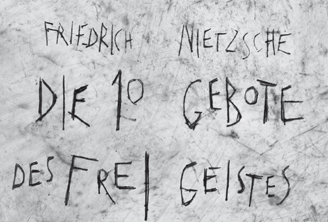 FRIEDRICH NIETZSCHE
DIE 10 GEBOTE
DES FREI GEISTES